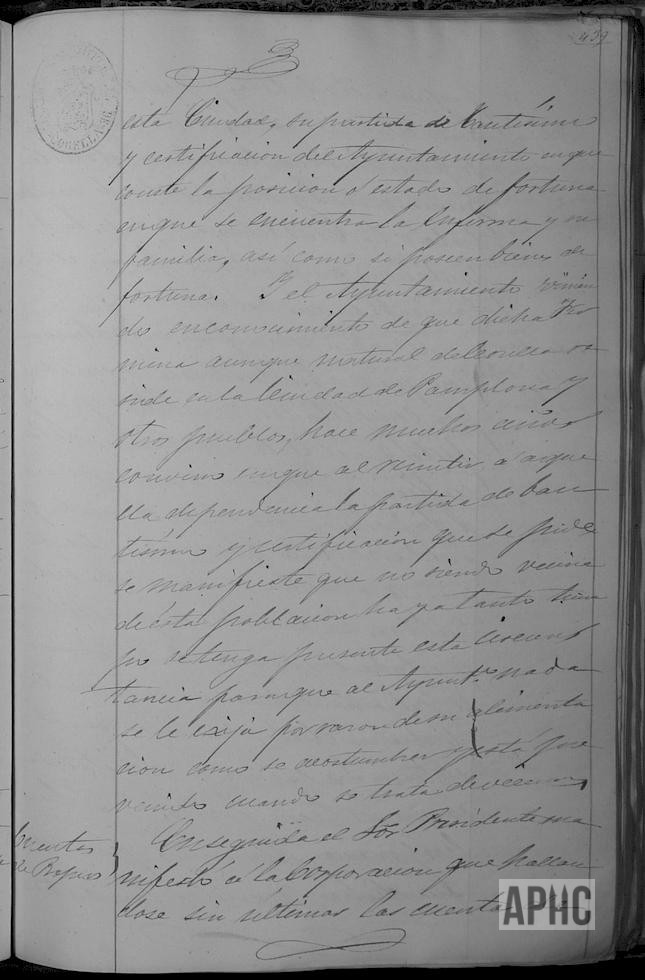 439
3
esta Ciudad, su partida de Bautismo
y certificacion del Ayuntamiento en que
conste la posicion o estado de fortuna
en que se encuentra la enferma y su
familia, así como si poseen bienes de
fortuna. Y el Ayuntamiento tenien
do en conocimiento de que dicha
mina aunque natural de Corella re
side en la Ciudad de Pamplona y
otros pueblos, hace muchos años
convino en que al remitir a aque
lla dependencia la partida de bau
tismo y certificación que se pide
se manifieste que no siendo vecina
de ésta poblacion haya tanto tiem
po se tenga presente esta circuns
tancia para que al Ayuntº nada
se le exija por razon de su alimenta
cion como se acostumbra y está pre
venido cuando se trata de vecinos,
Cuentas
de Propios
Enseguida el Sor Presidente ma
nifestó á la Corporacion que hallan
dose sin ultimar las cuentas de
APHC